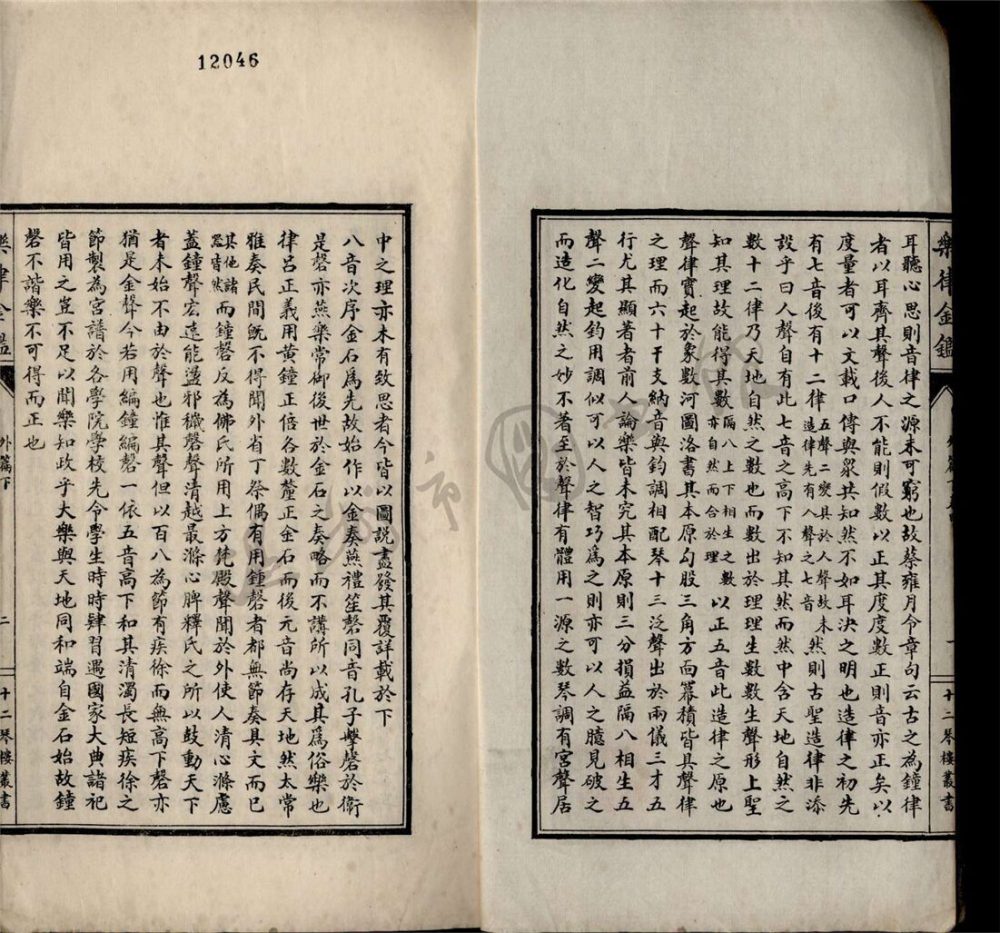 樂律金鑑
一
十二琴樓叢書
耳聽心思則音律之源未可窮也故蔡雍月令章句云古之為鐘律
者以耳齊其聲後人不能則假數以正其度度數正則音亦正矣以
度量者可以文載口傳與眾共知然不如耳決之明也造律之初先
有七音後有十二律五聲二變具於人聲故未造律先有八聲之七音然則古聖造律非添
設乎曰人聲自有此七音之高下不知其然而然中含天地自然之
數十二律乃天地自然之數也而數出於理理生數數生聲形上聖
知其理故能得其數隔八上下相生之數亦自然而合於理以正五音此造律之原也
聲律實起於象數河圖洛書其本原勾股三角方面冪積皆具聲律
之理而六十干支納音與鈞調相配琴十三泛聲出於兩儀三才五
行尤其顯著者前人論樂皆未究其本原則三分損益隔八相生五
聲二變起鈞用調似可以人之智巧爲之則亦可以人之臆見破之
而造化自然之妙不著至於聲律有體用一源之數琴調有宮聲居
12046
中之理亦未有致思者今皆以圖說盡發其覆詳載於下
八音次序金石爲先故始作以金奏燕禮笙磬同音孔子擊磬於衛
是磬亦燕樂常御後世於金石之奏略而不講所以成其爲俗樂也
律呂正義用黃鐘正倍各數釐正金石而後元音尚存天地然太常
雅奏民間既不得聞外省丁祭偶有用鐘磬者都無節奏具文而已
其他諸器皆然而鐘磬反為佛氏所用上方梵殿聲聞於外使人清心滌慮
蓋鐘聲宏遠能盪邪穢磬聲清越最滌心脾釋氏之所以鼓動天下
者未始不由於聲也惟其聲但以百八為節有疾徐而無高下磬亦
猶是金聲今若用編鐘編磬一依五音高下和其清濁長短疾徐之
節製為宮譜於各學院學校先令學生時時肄習遇國家大典諸祀
皆用之豈不足以聞樂知政乎大樂與天地同和端自金石始故鐘
磬不諧樂不可得而正也
樂律金鑑
外篇下
二
十二琴樓叢書